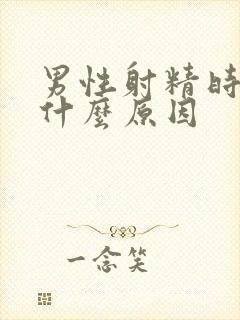 男性射精時
什麼原因
一念笑